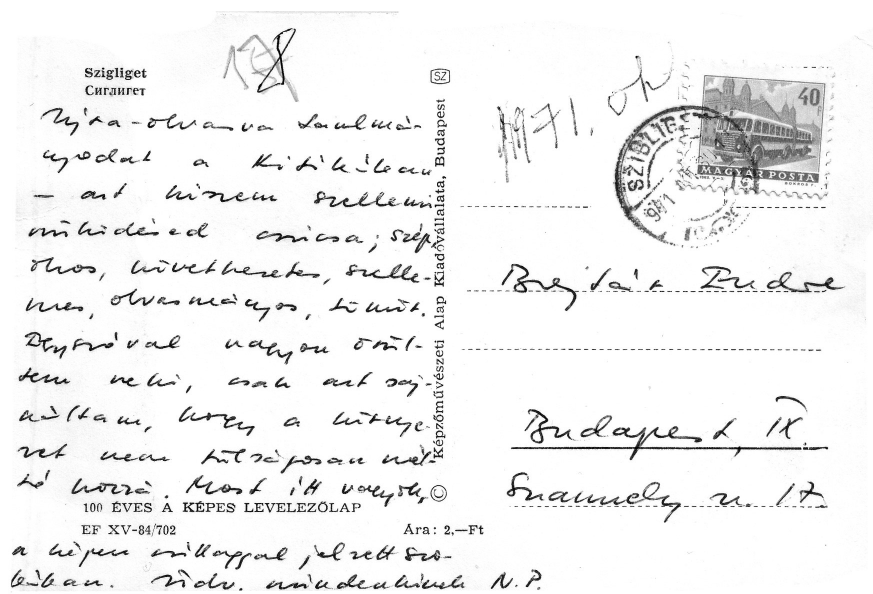 178
Szigliget
Сиглигет
Újra-olvasva tanulmá-
nyodat a Kritikában
– azt hiszem szellemi
működésed csúcsa; szép,
okos, következetes, szelle-
mes, olvasmányos, tömör.
Egyszóval nagyon örül-
tem neki, csak azt saj-
náltam, hogy a környe-
zet nem túlságosan mél-
tó hozzá. Most itt vagyok,
100 ÉVES A KÉPES LEVELEZŐLAP
EF XV-84/702
Ára: 2,—Ft
a képen csillaggal jelzett szo-
bában. Üdv. mindenkinek N.P.
SZ
Képzőművészeti Alap Kiadóvállalata, Budapest
©
1971. ok
40
MAGYAR POSTA
SZIGLIGET
971
Bojtár Endre
Budapest, IX.
u. 17.